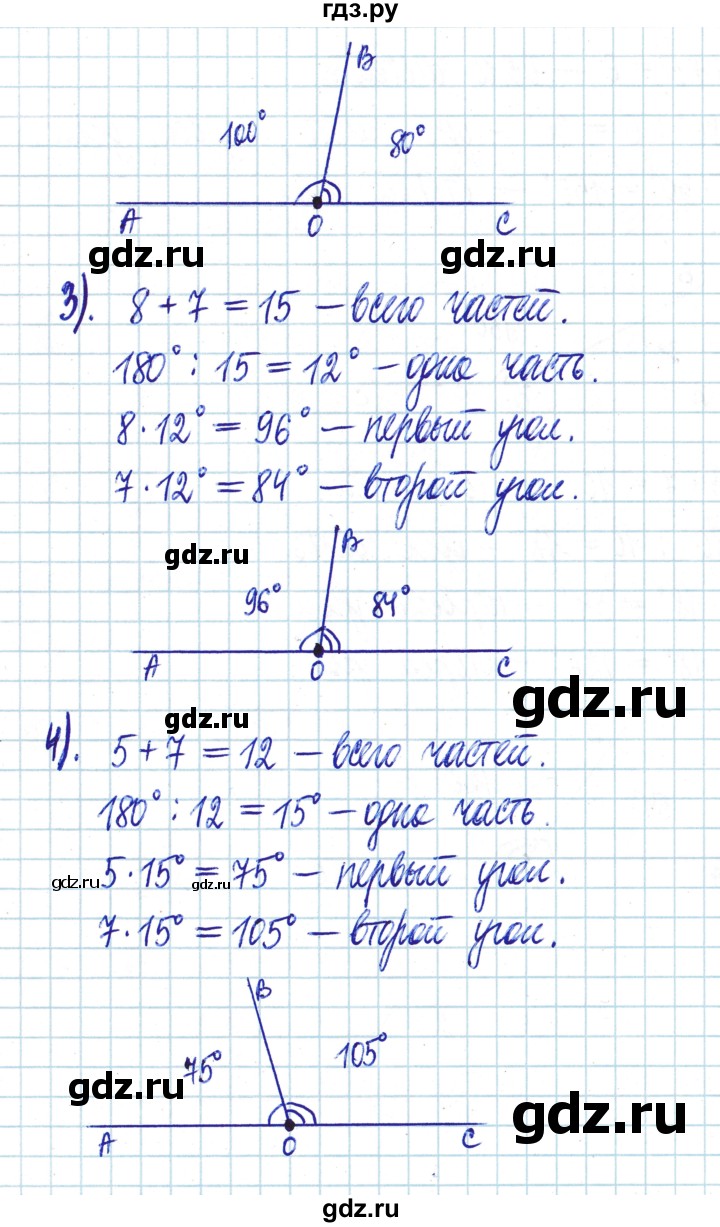 гдз.ру
B
100° 80°
A O C
gdz.ru gdz.ru
3). 8 + 7 = 15 – всего частей.
180° : 15 = 12° – одна часть.
8 · 12° = 96° – первый угол.
7 · 12° = 84° – второй угол.
B
gdz.ru
96° 84°
A O C
gdz.ru
gdz.ru
4). 5 + 7 = 12 – всего частей.
180° : 12 = 15° – одна часть.
gdz.ru 5 · 15° = gdz.ru 75° – первый угол.
7 · 15° = 105° – второй угол.
B
75° 105°
gdz.ru gdz.ru
A O C
gdz.ru